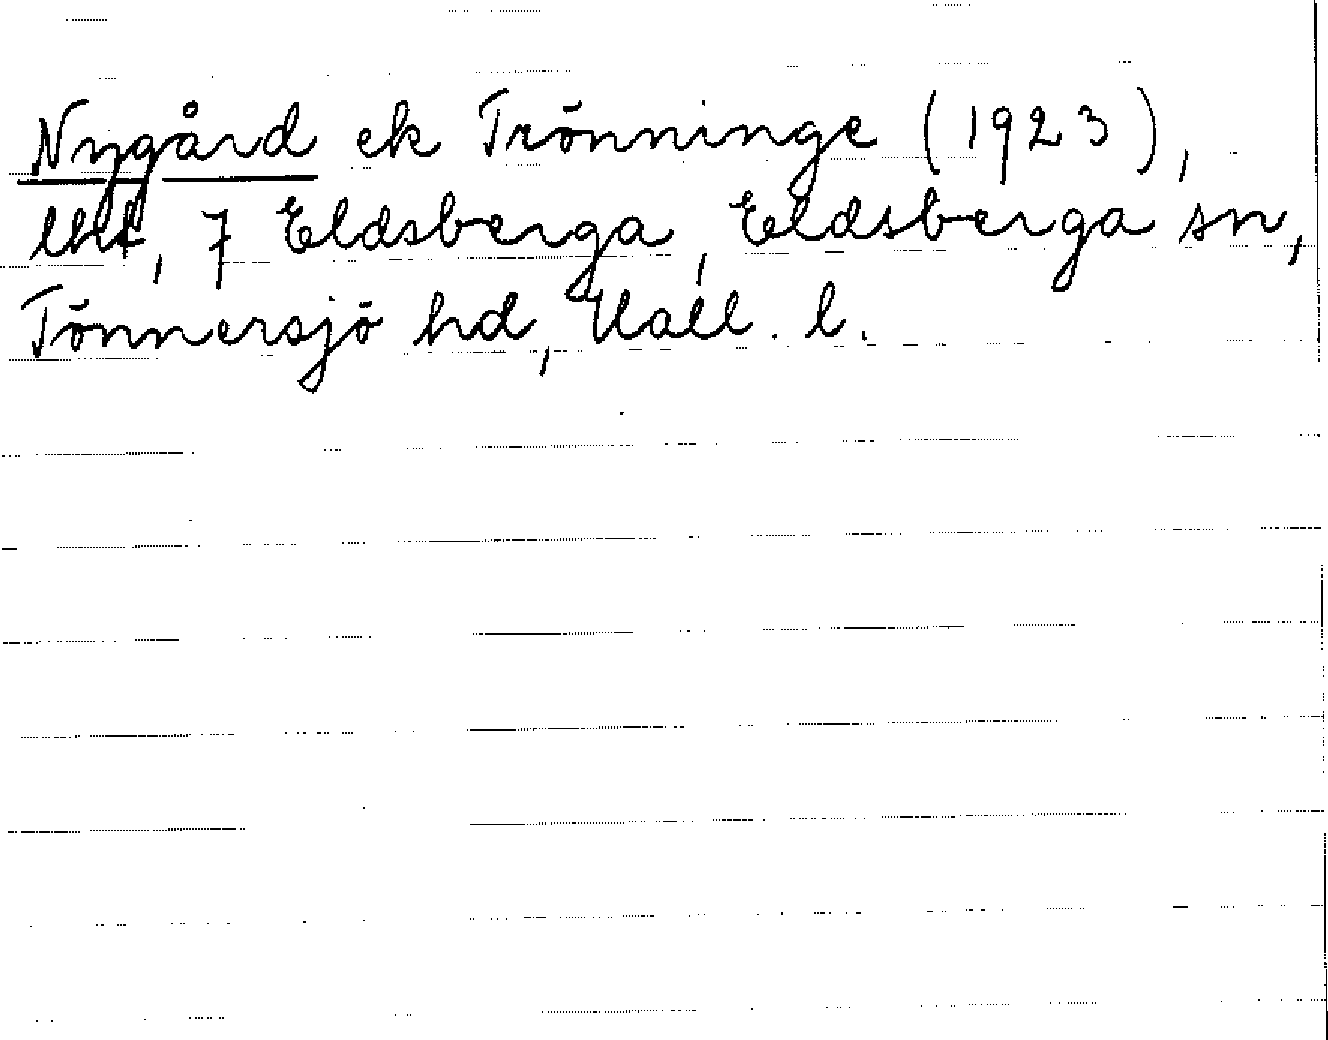 Nygård ek Trönninge (1923),
lht, 7 Eldsberga, Eldsberga sn,
Tönnersjö hd, Hall. l.